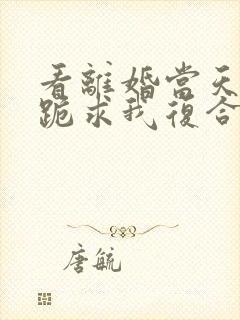 看離婚當天
跪求我復合
唐毓